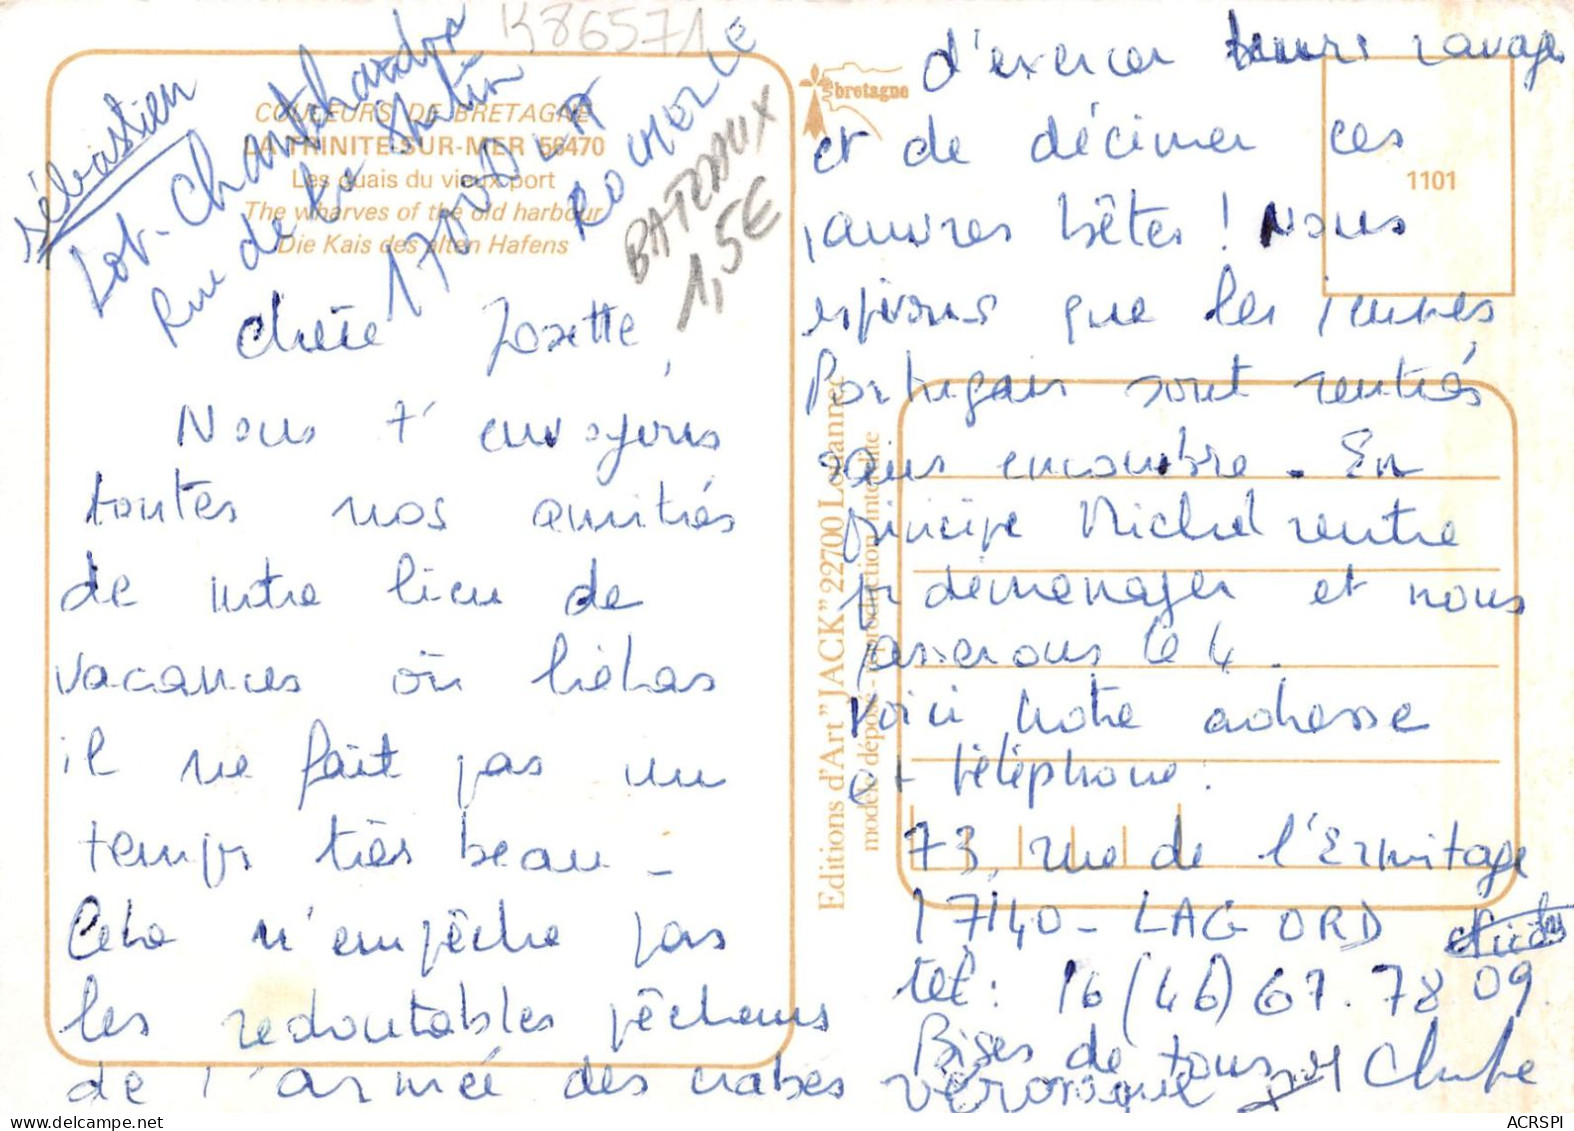 K86571
Sébastien
Lot. Chantchardon
Rue de la
17000 LA
ROCHELLE
BATEAUX
1,5€
COULEURS DE BRETAGNE
LA TRINITE-SUR-MER 56470
Les quais du vieux port
The wharves of the old harbour
Die Kais des alten Hafens
Chère Josette,
Nous t'envoyons
toutes nos amitiés
de notre lieu de
vacances où hélas
il ne fait pas un
temps très beau -
Cela n'empêche pas
les redoutables pêcheurs
de l'armée des crabes
bretagne
1101
Editions d'Art "JACK" 22700 Louannec
modèle déposé - reproduction interdite
d'exercer leurs ravages
et de décimer ces
pauvres bêtes ! Nous
espérons que les jeunes
Portugais sont rentrés
sans encombre. En
principe Michel rentre
pr déménager et nous
passerons le 4.
Voici notre adresse
et téléphone :
73, rue de l'Ermitage
17140 - LAGORD
tel : 16 (46) 67.78 09.
Bises de tous
Véronique
ACRSPI